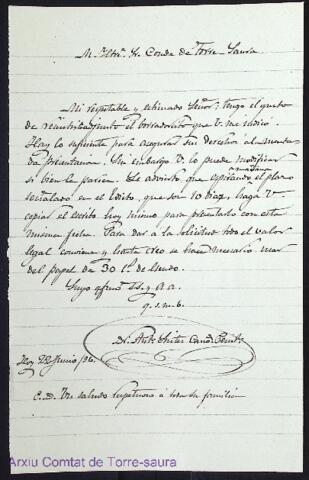 M. Iltre. Sr. Conde de Torre-Saura
Mi respetable y estimado Señor: tengo el gusto
de remitirle adjunto el borradorcito que V. me indicó.
Hay lo suficiente para asegurar su derecho al
da presentación. Sin embargo V. lo puede modificar
si bien le parece. Le advierto que espirando el plazo
mañana
señalado en el Edicto, que son 10 días, haga V.
copiar el escrito hoy mismo para presentarlo con esta
misma fecha. Para dar a la solicitud todo el valor
legal conviene y hasta creo se hace necesario usar
del papel de 30 cs. de
Suyo afmo. S. S. y
q. s. m. b.
Hoy 22 Junio/96.
P. D. Un saludo respetuoso á toda su familia
Arxiu Comtat de Torre-saura